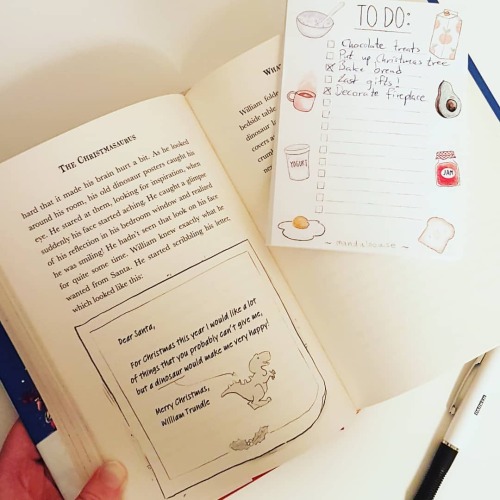 THE CHRISTMASAURUS
hard that it made his brain hurt a bit. As he looked
around his room, his old dinosaur posters caught his
eye. He stared at them, looking for inspiration, when
suddenly his face started aching. He caught a glimpse
of his reflection in his bedroom window and realized
he was smiling! He hadn't seen that look on his face
for quite some time. William knew exactly what he
wanted from Santa. He started scribbling his letter,
which looked like this:
Dear Santa,
For Christmas this year I would like a lot
of things that you probably can't give me,
but a dinosaur would make me very happy!
Merry Christmas,
William Trundle
William folde
bedside table
dinosaur
covers
TO DO:
Chocolate treats
Put up Christmas tree
Bake bread
Last gifts!
Decorate fireplace
YOGURT
JAM